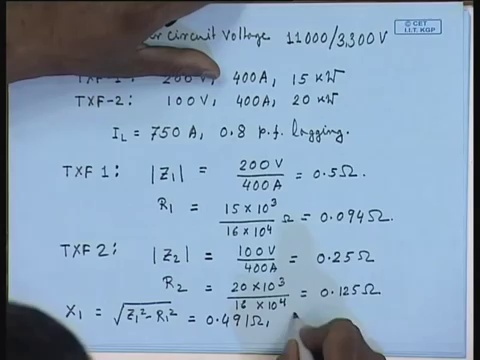 circuit Voltage 11000/3,300V
© CET
I.I.T. KGP
TXF-1: 200V, 400A, 15 kW
TXF-2: 100V, 400A, 20 kW
I_L = 750 A, 0.8 p.f. lagging.
TXF 1: |Z₁| = 200 V / 400A = 0.5Ω.
R₁ = 15 × 10³ / 16 × 10⁴ Ω = 0.094Ω.
TXF 2: |Z₂| = 100V / 400A = 0.25Ω
R₂ = 20 × 10³ / 16 × 10⁴ = 0.125Ω
X₁ = √Z₁² - R₁² = 0.491Ω,